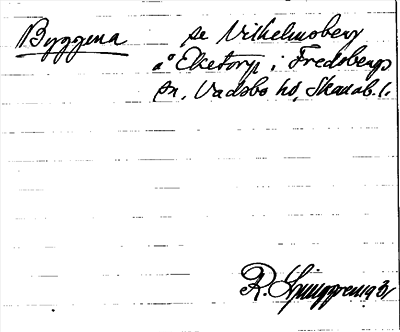 Byggena se Vilhelmsberg
å Eketorp i Fredsbergs
sn, Vadsbo hd, Skarab. l.
R. Ljunggren 1931